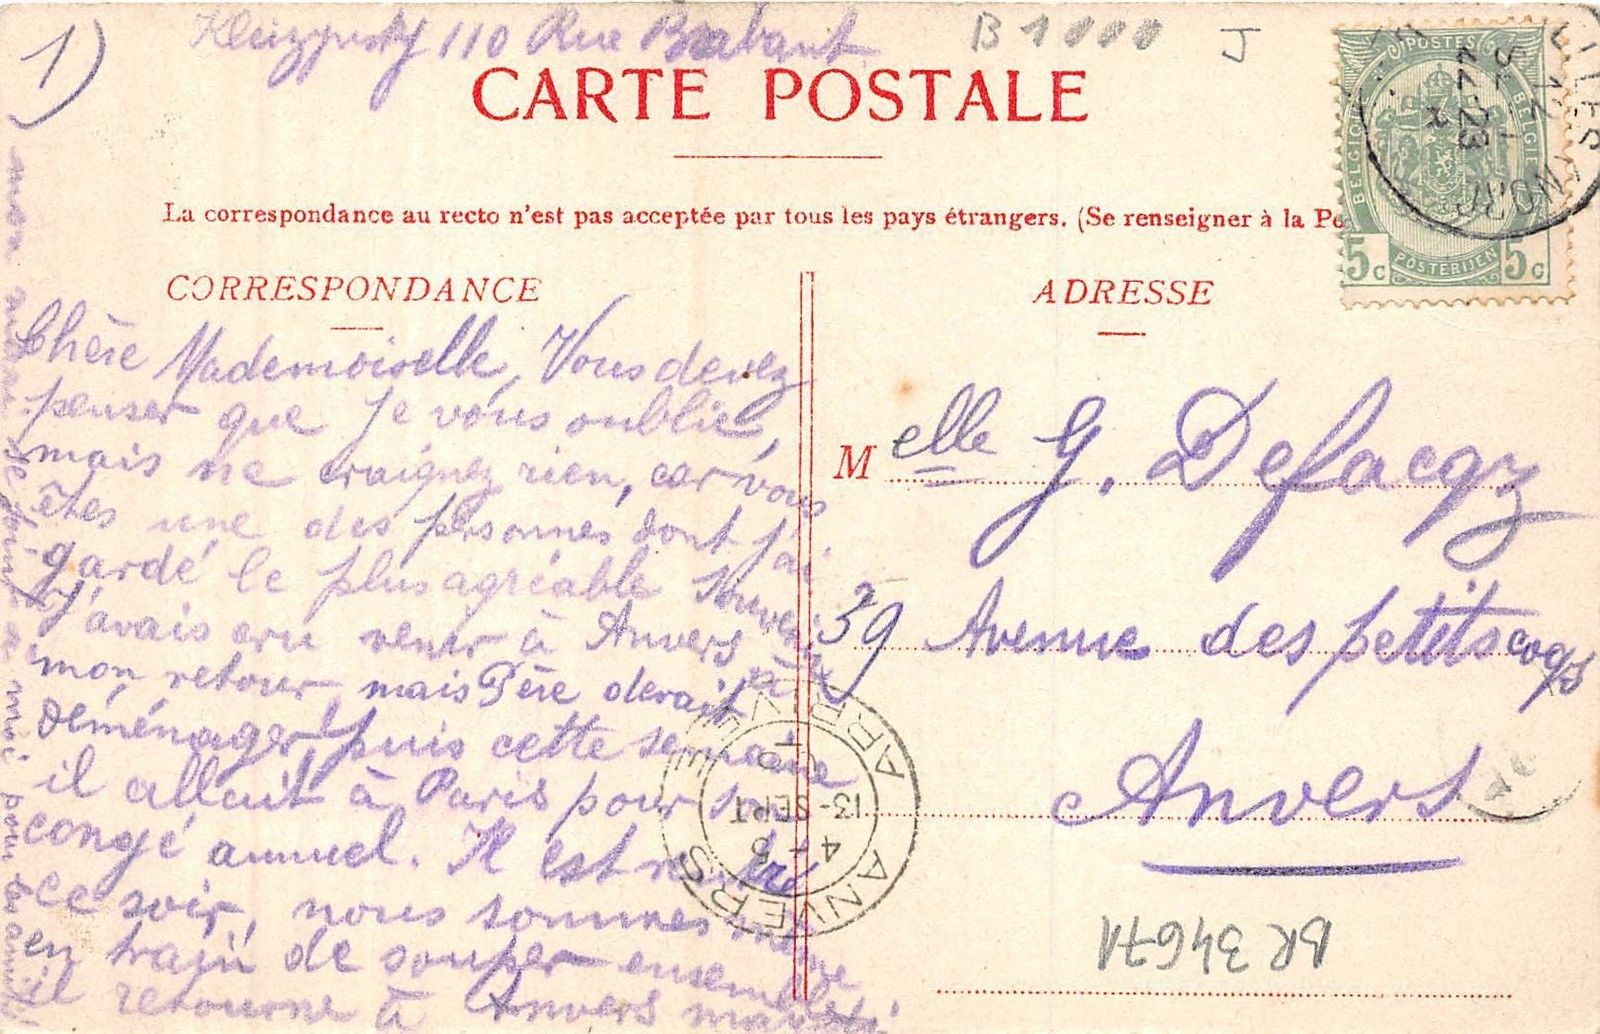 1)
110 Rue Brabant
B 1000
J
CARTE POSTALE
La correspondance au recto n'est pas acceptée par tous les pays étrangers. (Se renseigner à la Po
POSTES
BELGIQUE
BELGIE
POSTERIJEN
5c 5c
NORD
CORRESPONDANCE
Chère Mademoiselle, Vous devez
penser que je vous oublie,
mais ne craignez rien, car vous
êtes une des personnes dont j'ai
gardé le plus agréable souvenir
J'avais cru venir à Anvers à
mon retour mais Père devait
déménager puis cette semaine
il allait à Paris pour son
congé annuel. Il est rentré
ce soir, nous sommes même
en train de souper ensemble
il retourne à Anvers mardi
mon se joint à moi pour
ADRESSE
Melle G. Defacqz
39 Avenue des petits coqs
Anvers
ANVERS
ARRIVÉE
4-5
13-SEPT
BR 34671